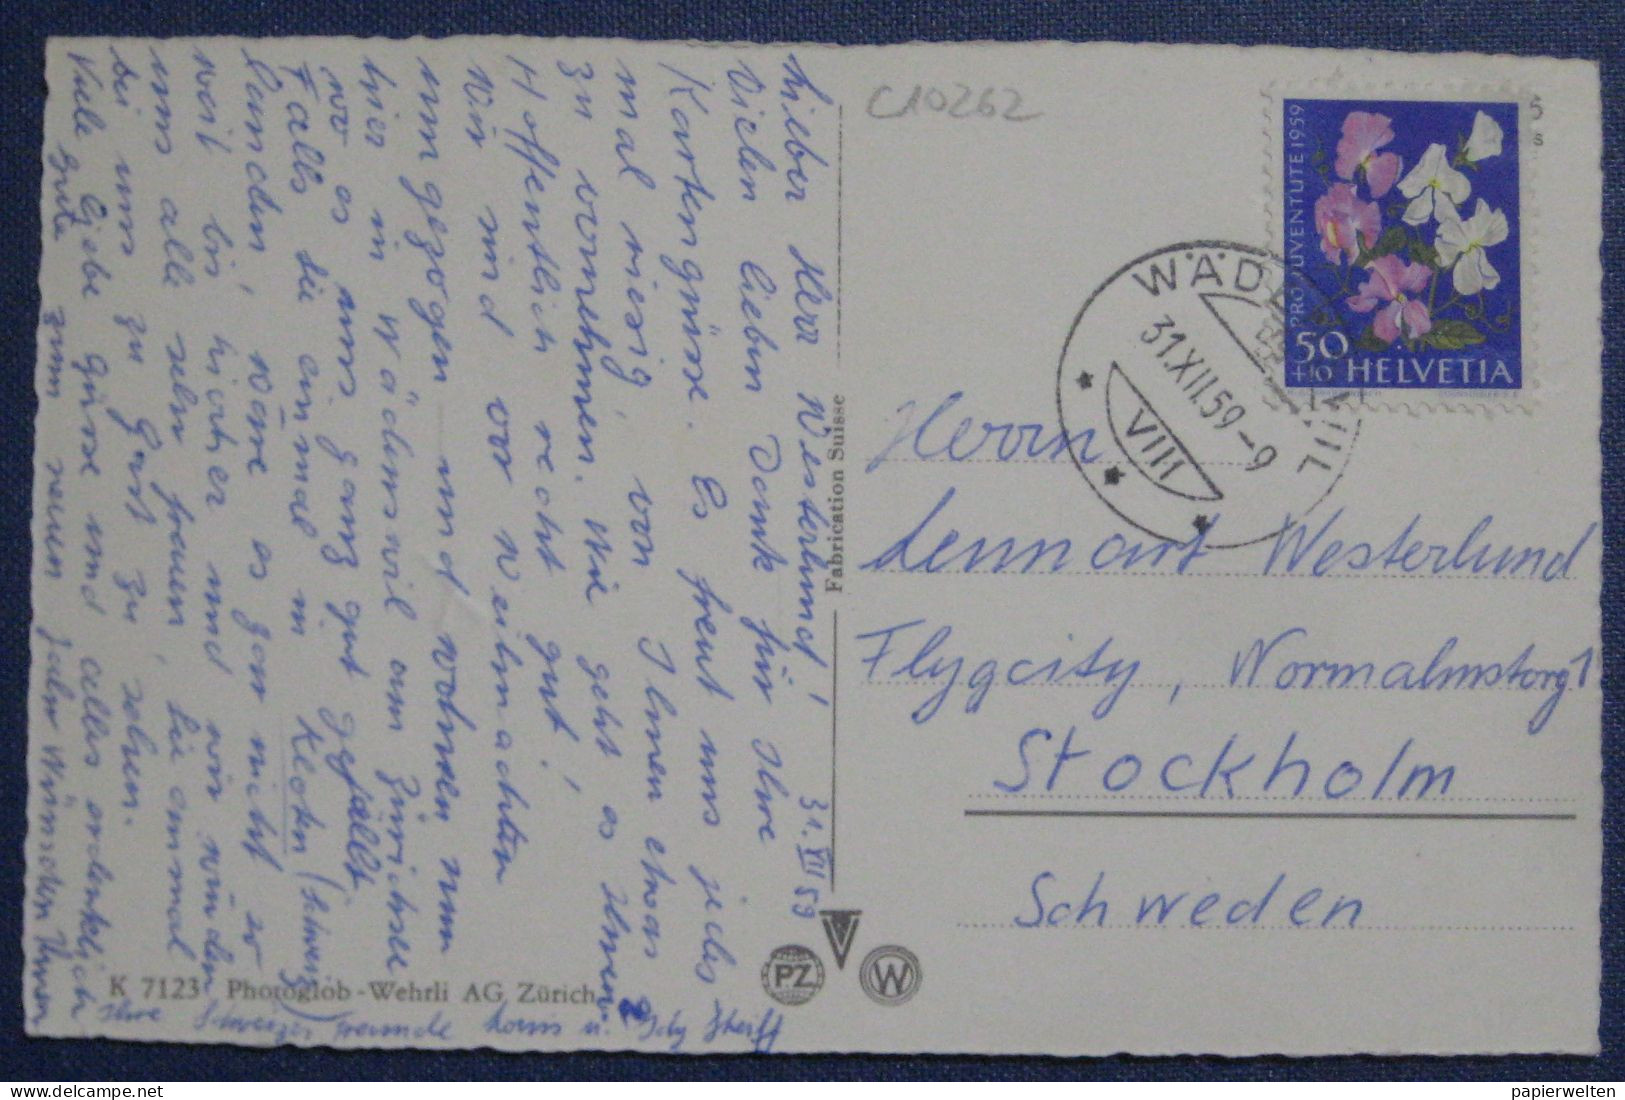 31. XII 59
Lieber Herr Westerlund!
Vielen lieben Dank für Ihre
Kartengrüsse. Es freut uns jedes
mal riesig, von Ihnen etwas
zu vernehmen. Wie geht es Ihnen?
Hoffentlich recht gut!
Wir sind vor Weihnachten
umgezogen und wohnen nun
hier in Wädenswil am Zürichsee
wo es uns ganz gut gefällt
Falls Sie einmal in Kloten (Schweiz)
landen, wäre es gar nicht so
weit bis hierher und wir würden
uns alle sehr freuen, Sie einmal
bei uns zu Gast zu sehen.
Viele liebe Grüsse und alles erdenklich
Gute zum neuen Jahr wünschen Ihnen
Ihre Schweizer Freunde
Fabrication Suisse
K 7123 Photoglob-Wehrli AG Zürich
PZ
W
C10262
PRO JUVENTUTE 1959
50
+10 HELVETIA
5
s
WÄDENSWIL
31.XII.59-9
VIII
Herrn
Lennart Westerlund
Flygcity, Normalmstorg 1
Stockholm
Schweden
papierwelten